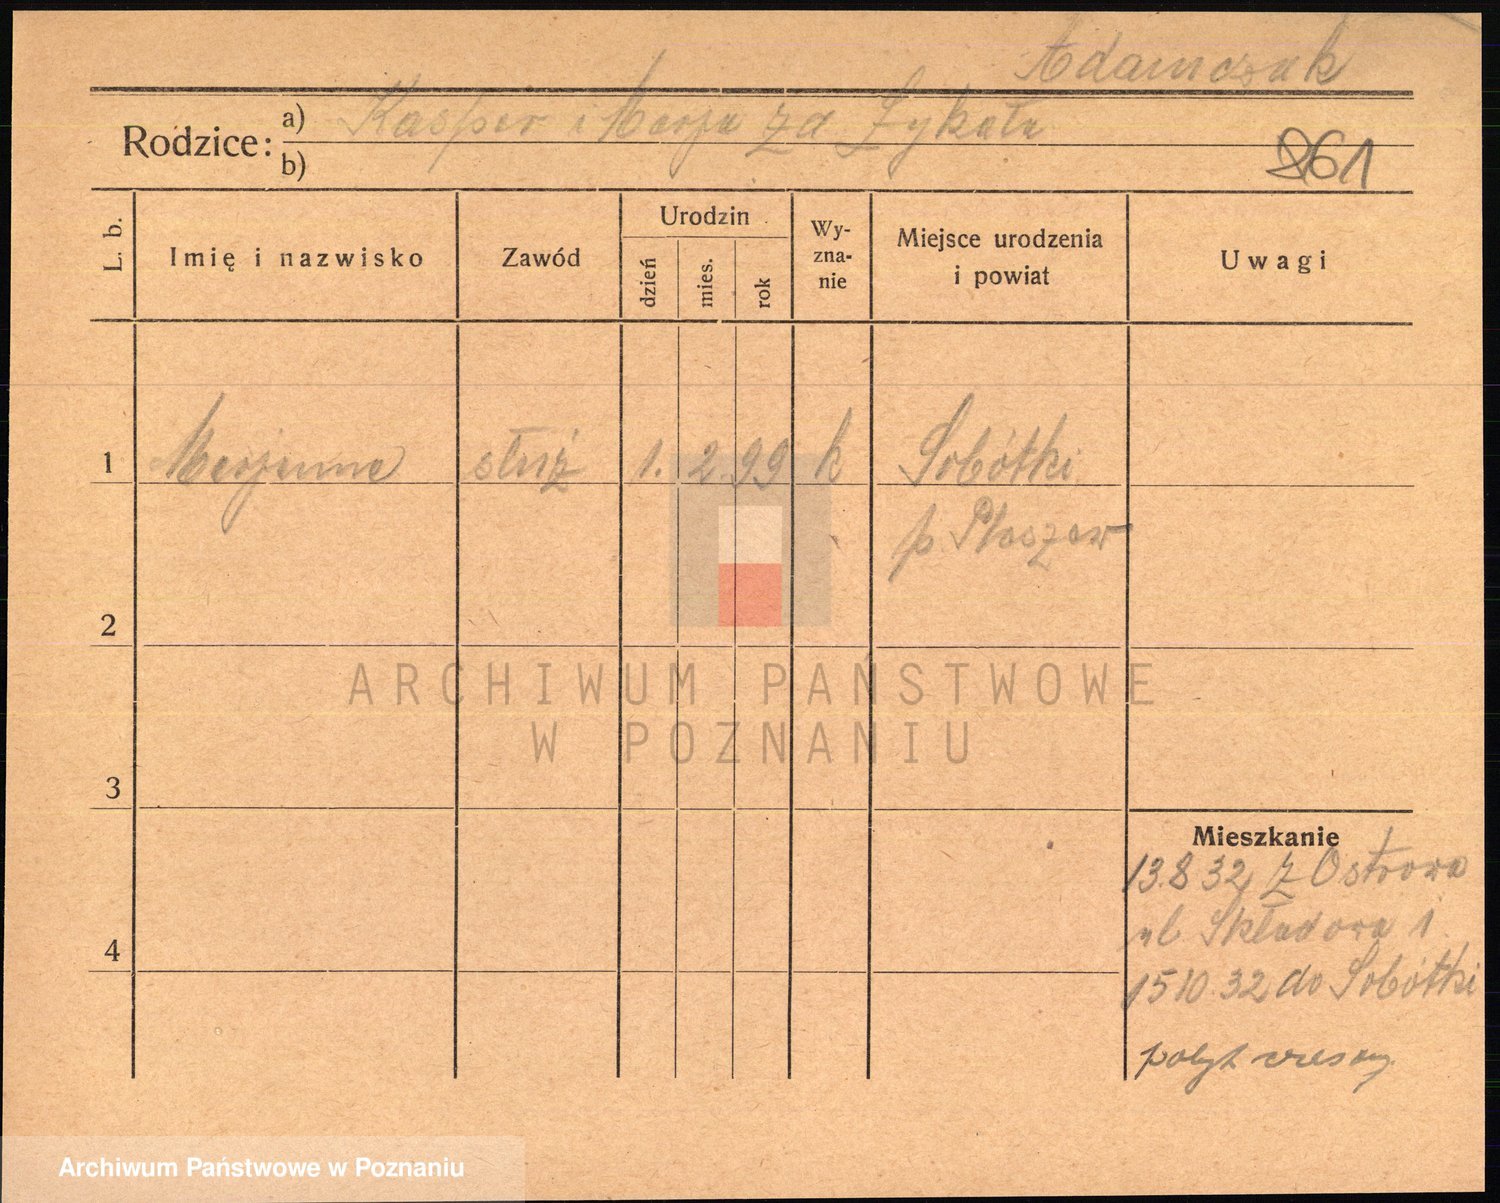 Adamczak
Rodzice: a) Kasper i Marja zd Zykała
b)
261
L. b.
Imię i nazwisko
Zawód
Urodzin
dzień
mies.
rok
Wy-
zna-
nie
Miejsce urodzenia
i powiat
Uwagi
1 Marjanna służ 1. 2 99 k Sobótki
p. Pleszew
2
3
4
Mieszkanie
13.8 32 z Ostrowa
ul Składowa 1
15 10. 32 do Sobótki
pobyt czasowy
ARCHIWUM PAŃSTWOWE
W POZNANIU
Archiwum Państwowe w Poznaniu